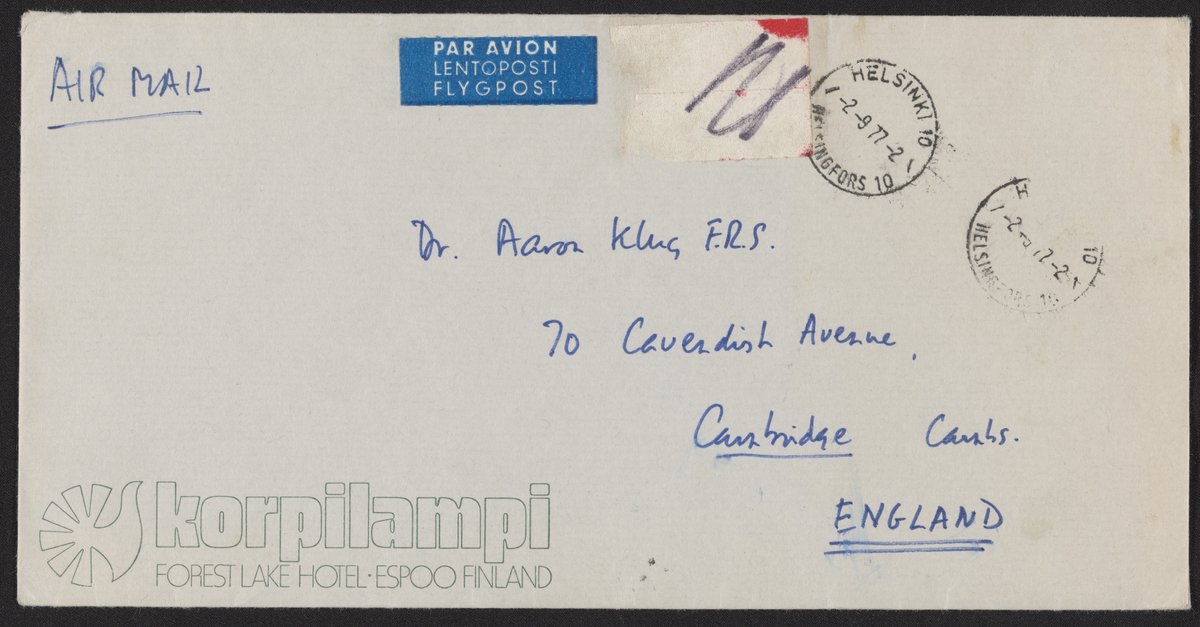 AIR MAIL
PAR AVION
LENTOPOSTI
FLYGPOST
HELSINKI 10
-2-9 77-2
HELSINGFORS 10
H 10
HELSINGFORS 10
Dr. Aaron Klug F.R.S.
70 Cavendish Avenue,
Cambridge Cambs.
ENGLAND
korpilampi
FOREST LAKE HOTEL·ESPOO FINLAND